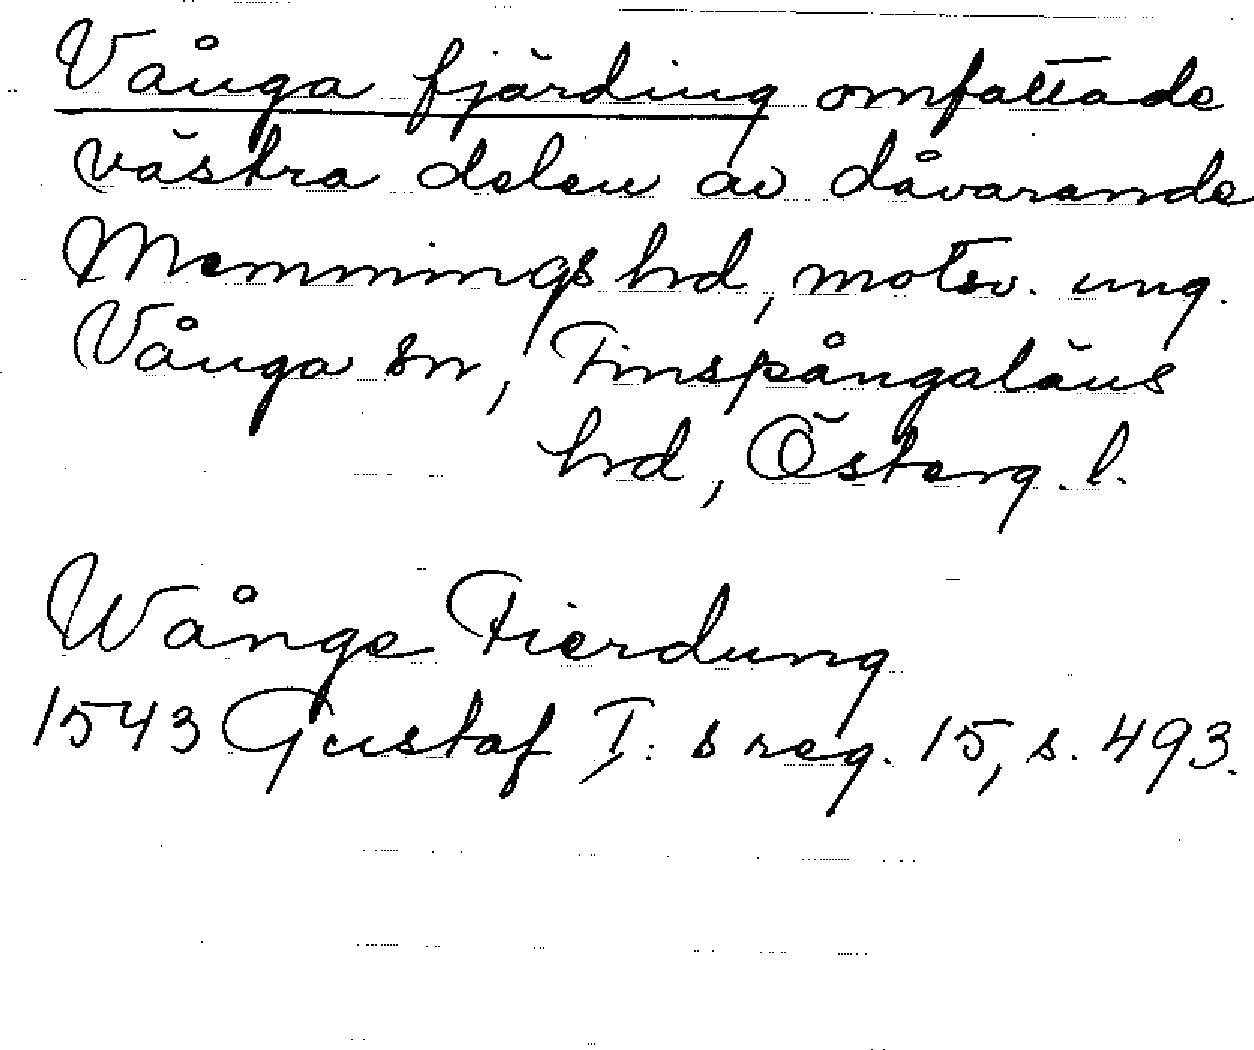 Vånga fjärding omfattade
västra delen av dåvarande
Memmings hrd, motsv. ung.
Vånga sn, Finspångaläns
hrd, Österg. l.
Wånge Fierdung
1543 Gustaf I: s reg. 15, s. 493.